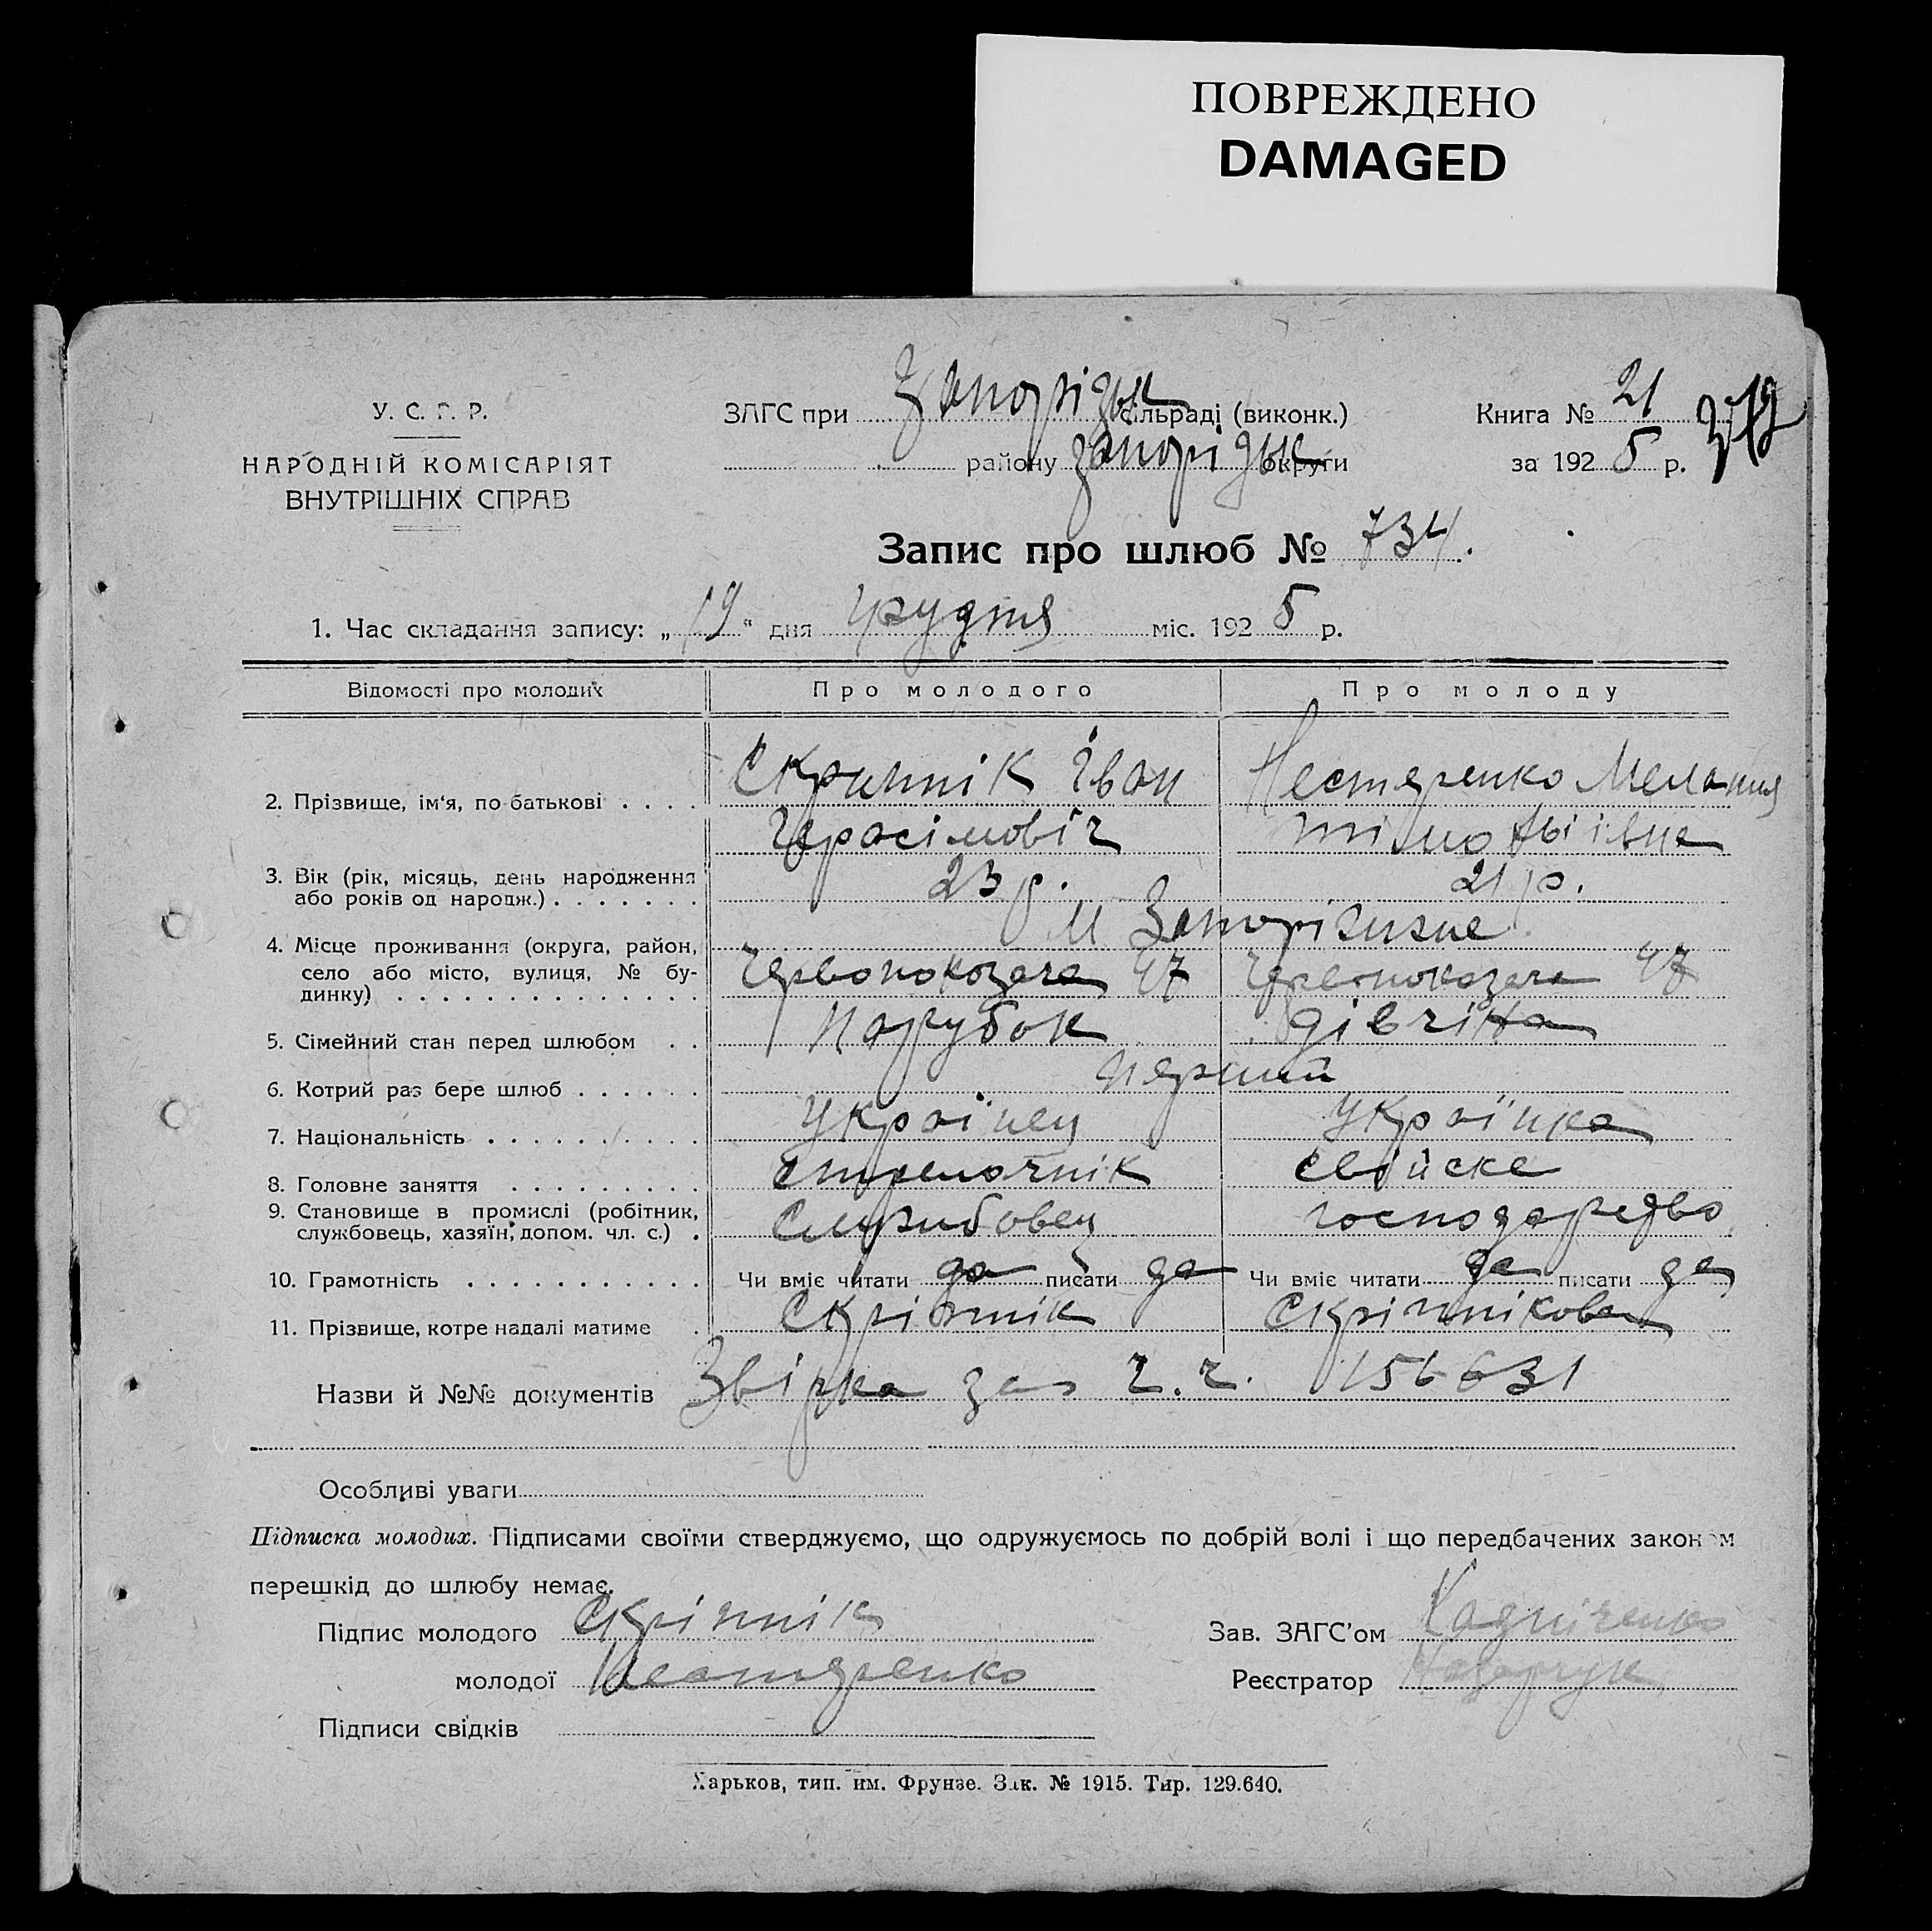 ПОВРЕЖДЕНО
DAMAGED
У. С. Р. Р.
НАРОДНІЙ КОМІСАРІЯТ
ВНУТРІШНІХ СПРАВ
ЗАГС при Запорізьк сільраді (виконк.)
району запорізьк округи
Книга № 21
за 1925 р.
Запис про шлюб № 734.
1. Час складання запису: „19“ дня грудня міс. 1925 р.
Відомості про молодих Про молодого Про молоду
2. Прізвище, ім‘я, по-батькові . . . . Скрипнік Іван Нестеренко Мелания
Герасімовіч
3. Вік (рік, місяць, день народження
або років од народж.) . . . . . . . 23 р. 21 р.
М Запоріжжже
4. Місце проживання (округа, район,
село або місто, вулиця, № бу-
динку) . . . . . . . . . . . . . . Червонокозача 47 Червонокозача 47
5. Сімейний стан перед шлюбом . . Парубок дівчіна
6. Котрий раз бере шлюб . . . . . . перший
7. Національність . . . . . . . . . . Українец Українка
8. Головне заняття . . . . . . . . . Стрелочнік свійске
9. Становище в промислі (робітник,
службовець, хазяїн, допом. чл. с.) . Службовец господарсдво
10. Грамотність . . . . . . . . . . . Чи вміє читати да писати да Чи вміє читати да писати да
11. Прізвище, котре надалі матиме . Скріпнік Скріпнікова
Назви й №№ документів Звірка за ч.ч. 156631
Особливі уваги
Підписка молодих. Підписами своїми стверджуємо, що одружуємось по добрій волі і що передбачених законом
перешкід до шлюбу немає.
Підпис молодого Скріпнік Зав. ЗАГС’ом
молодої Нестеренко Реєстратор
Підписи свідків
Харьков, тип. им. Фрунзе. Зак. № 1915. Тир. 129.640.